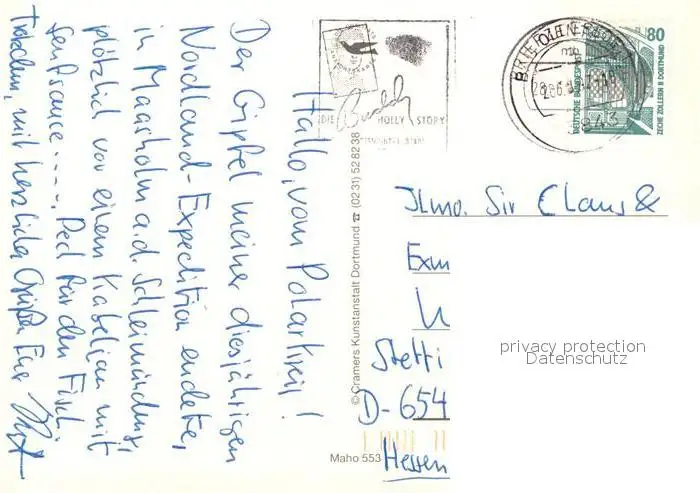 Hallo, vom Polarkreis!
Der Gipfel meiner diesjährigen
Nordland-Expedition endete,
in Maasholm a.d. Schleimündung,
plötzlich vor einem Kabeljau mit
Senfsauce ...., Pech für den Fisch.
Trotzdem, mit herzlichen Grüßen Euer
© Cramers Kunstanstalt Dortmund ☎ (0231) 528238
Maho 553
DIE Buddy HOLLY STORY
80
DEUTSCHE BUNDESPOST
ZECHE ZOLLERN II DORTMUND
Jlmo. Sir Claus &
Exm
Stetti
D-654
Hessen
privacy protection
Datenschutz